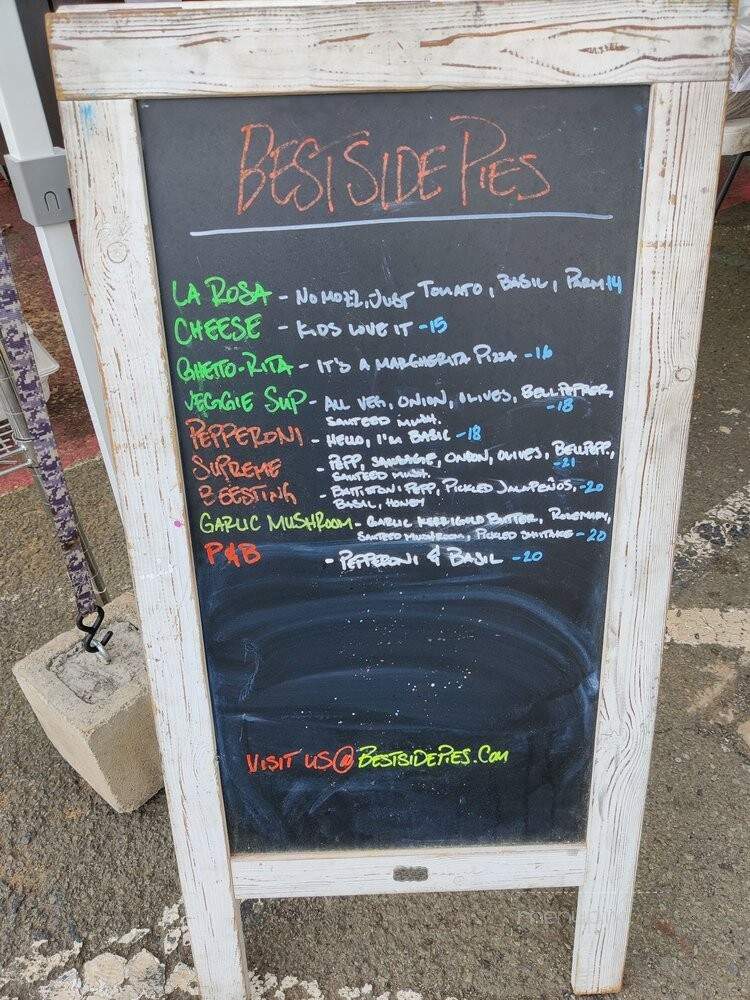 BEST SIDE PIES
LA ROSA - NO MOZZ, JUST TOMATO, BASIL, PARM 14
CHEESE - KIDS LOVE IT - 15
GHETTO-RITA - IT'S A MARGHERITA PIZZA - 16
VEGGIE SUP - ALL VEG, ONION, OLIVES, BELL PEPPER,
SAUTEED MUSH. - 18
PEPPERONI - HELLO, I'M BASIC - 18
SUPREME - PEPP, SAUSAGE, ONION, OLIVES, BELLPEPP.,
SAUTEED MUSH. - 21
BEESTING - BATTISTONI PEPP, PICKLED JALAPEÑOS, - 20
BASAL, HONEY
GARLIC MUSHROOM - GARLIC KERRIGOLD BUTTER, ROSEMARY,
SAUTEED MUSHROOM, PICKLED SHIITAKE - 20
P&B - PEPPERONI & BASIL - 20
VISIT US@BESTSIDEPIES.COM